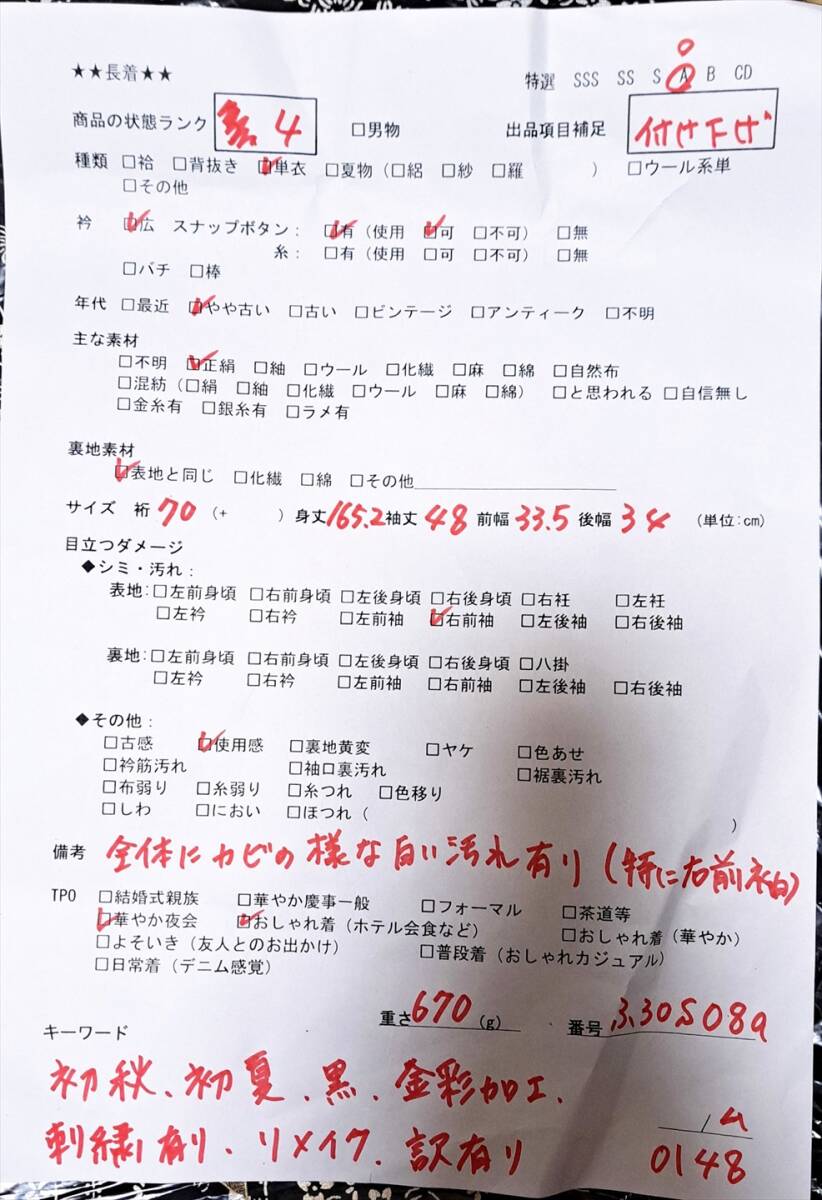 ★★長着★★
特選 SSS SS S A B CD
商品の状態ランク 4 □男物 出品項目補足 付け下げ
種類 □袷 □背抜き □単衣 □夏物（□絽 □紗 □羅 ） □ウール系単
□その他
衿 □広 スナップボタン： □有（使用 □可 □不可） □無
糸：□有（使用 □可 □不可） □無
□バチ □棒
年代 □最近 □やや古い □古い □ビンテージ □アンティーク □不明
主な素材
□不明 □正絹 □紬 □ウール □化繊 □麻 □綿 □自然布
□混紡（□絹 □紬 □化繊 □ウール □麻 □綿） □と思われる □自信無し
□金糸有 □銀糸有 □ラメ有
裏地素材
□表地と同じ □化繊 □綿 □その他
サイズ 裄 70 (+ ) 身丈 165.2 袖丈 48 前幅 33.5 後幅 34 (単位:cm)
目立つダメージ
◆シミ・汚れ：
表地:□左前身頃 □右前身頃 □左後身頃 □右後身頃 □右衽 □左衽
□左衿 □右衿 □左前袖 □右前袖 □左後袖 □右後袖
裏地:□左前身頃 □右前身頃 □左後身頃 □右後身頃 □八掛
□左衿 □右衿 □左前袖 □右前袖 □左後袖 □右後袖
◆その他：
□古感 □使用感 □裏地黄変 □ヤケ □色あせ
□衿筋汚れ □袖口裏汚れ □裾裏汚れ
□布弱り □糸弱り □糸つれ □色移り
□しわ □におい □ほつれ（ ）
備考 全体にカビの様な白い汚れ有り(特に右前袖)
TPO □結婚式親族 □華やか慶事一般 □フォーマル □茶道等
□華やか夜会 □おしゃれ着（ホテル会食など） □おしゃれ着（華やか）
□よそいき（友人とのお出かけ） □普段着（おしゃれカジュアル）
□日常着（デニム感覚）
重さ 670 (g) 番号
キーワード
初秋、初夏、黒、金彩加工、
刺繍有り、リメイク、訳有り
0148